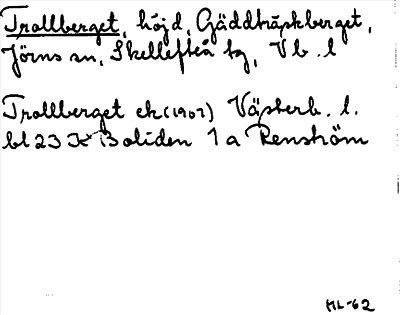 Trollberget, höjd, Gäddträskberget,
Jörns sn, Skellefteå tg, Vb. l
Trollberget ek (1907) Västerb. l.
bl 23 K Boliden 1 a Renström
ML-62